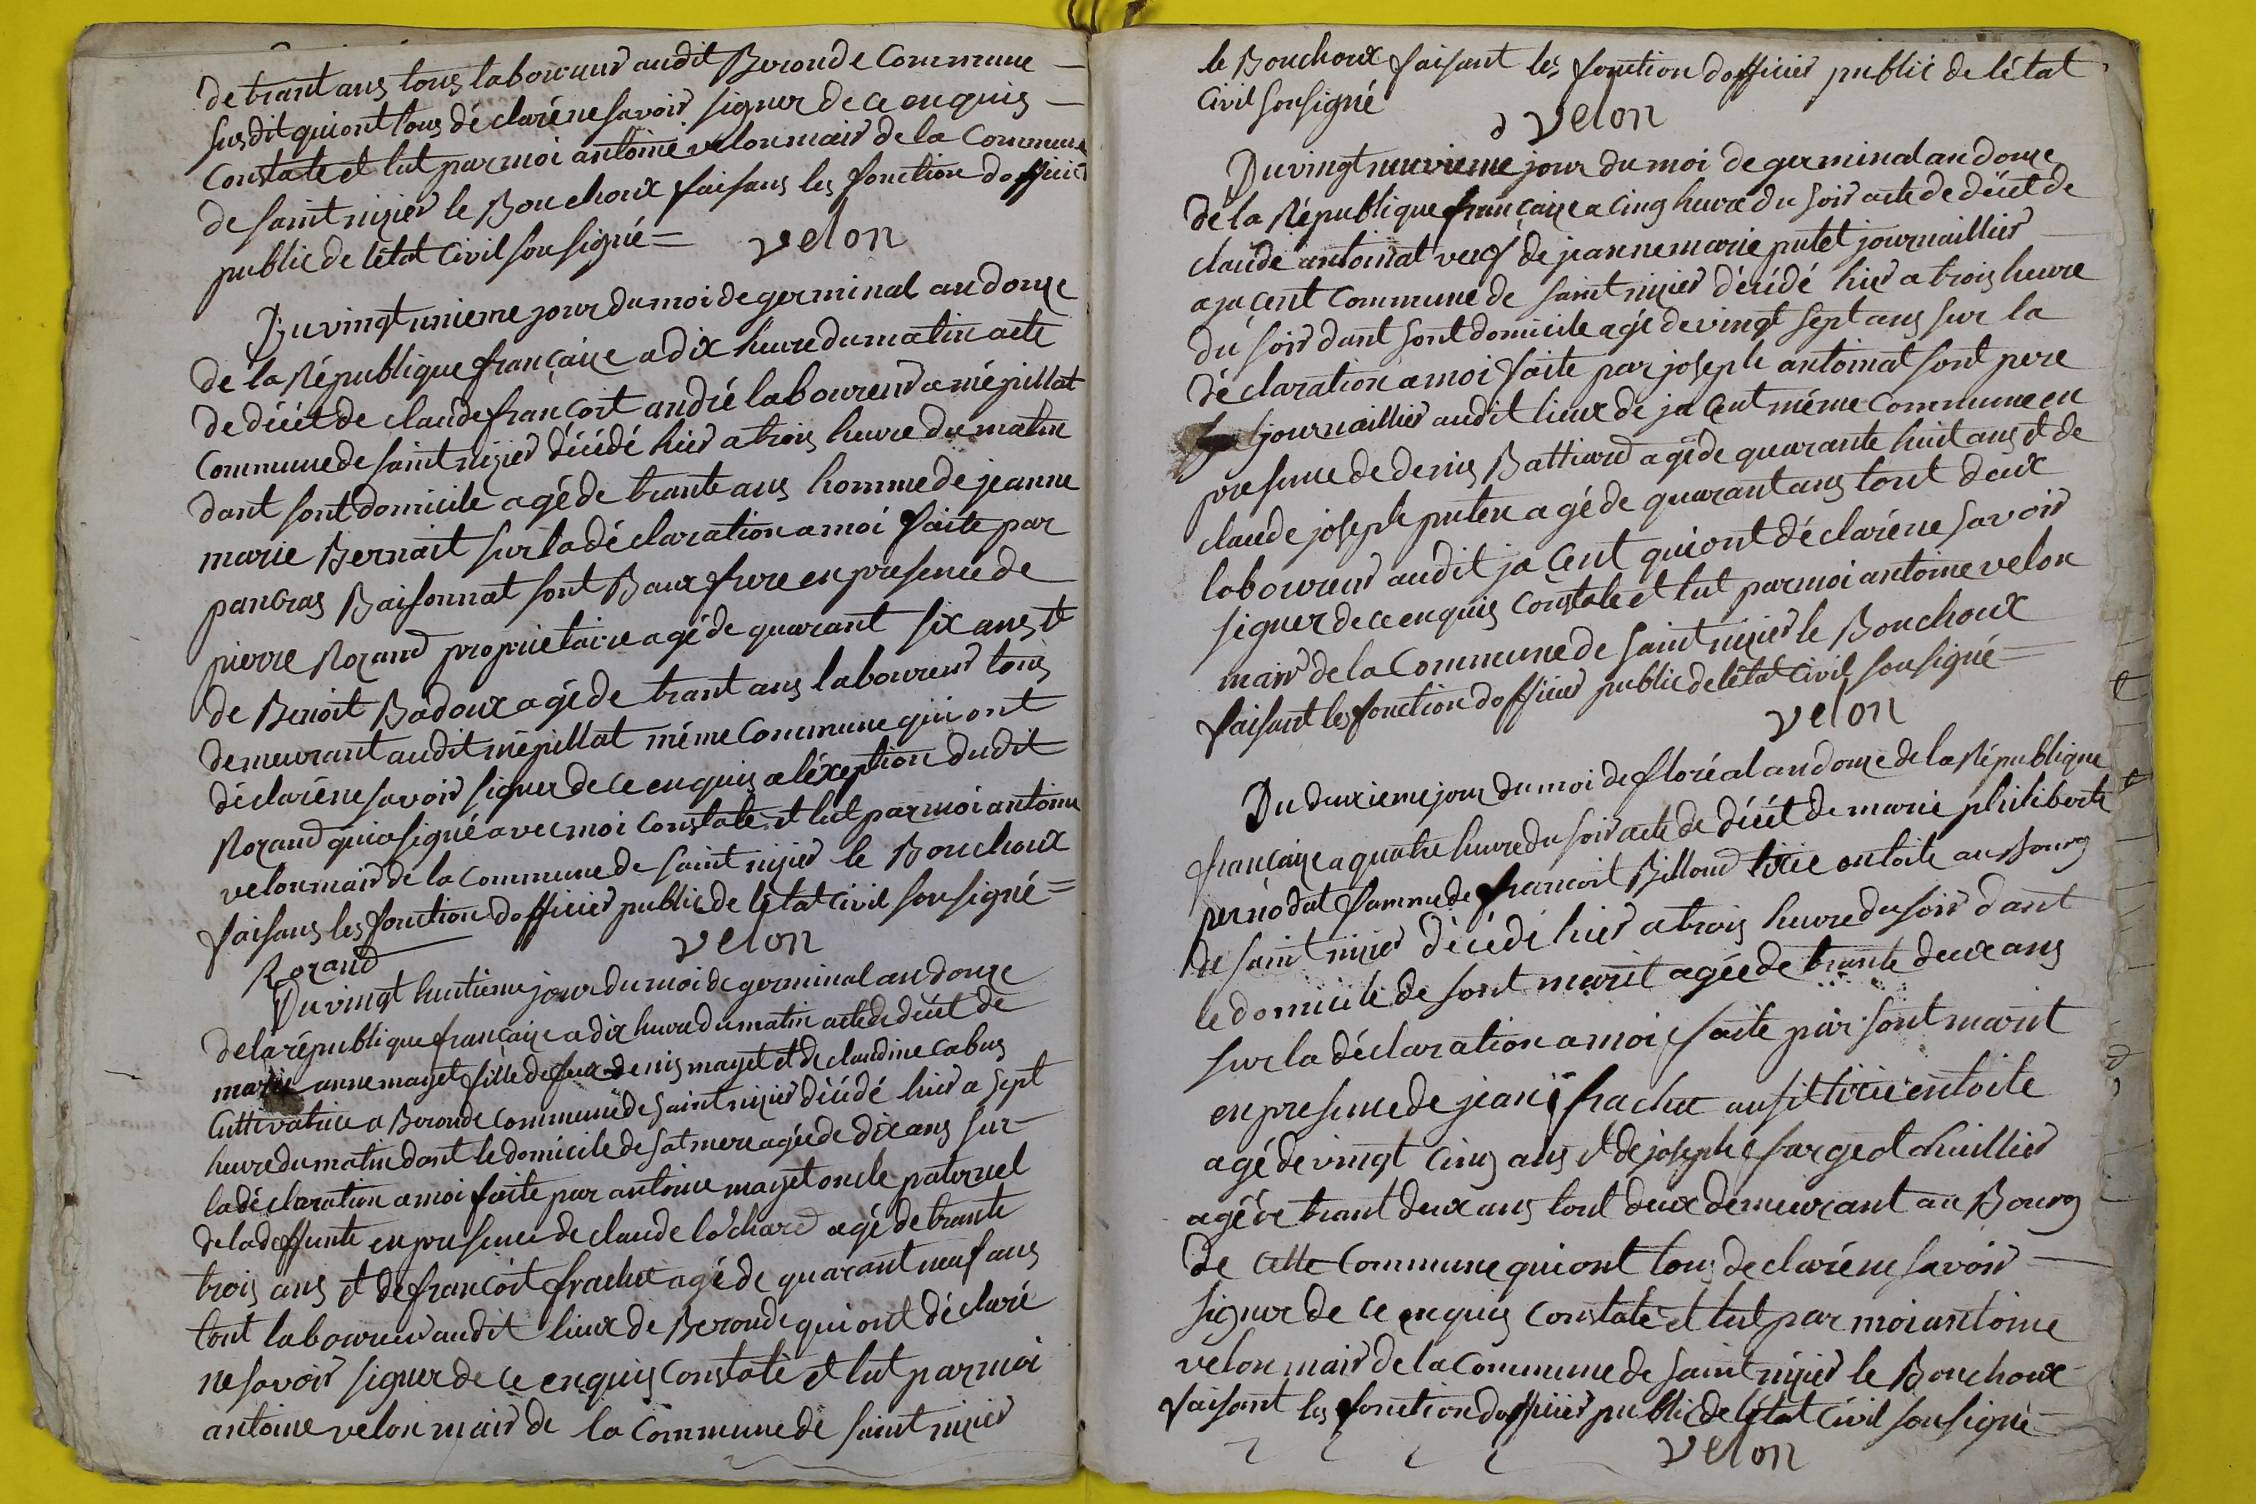 de trant ans tous laboureur audit Beronde Commune
susdit qui ont tous déclaré ne savoir signer de ce enquis
Constate et lut par moi antoine velon mair de la Commune
de saint nizier le Bouchoux faisans les fonction dofficier
public de létat Civil sousigné =
velon
Du vingt unieme jour du moi de germinal an douze
de la République françaize a dix heure du matin acte
de décèt de claude françoit andré laboureur a mépillat
Commune de saint nizier décédé hier a trois heure du matin
dant sont domicile agé de trante ans homme de jeanne
marie Bernait sur la déclaration a moi faite par
pancras Baisonnat sont Baux frere en presence de
pierre Rozand proprietaire agé de quarant six ans et
de Benoit Badoux agé de trant ans laboureur tous
demeurant audit mépillat méme Commune qui ont
déclaré ne savoir signer de ce enquis a léxeption dudit
Rozand qui a signé avec moi Constate et lut par moi antoine
velon mair de la Commune de saint nizier le Bouchoux
faisans les fonction dofficier public de létat Civil sousigné =
Rozand velon
Du vingt huitieme jour du moi de germinal an douze
de la république françaize a dix heure du matin acte de décèt de
marie anne mayet fille de feux denis mayet et de claudine cabus
Cultivatrice a Beronde Commune de saint nizier décédé hier a sept
heure du matin dant le domicile de sat mere agée de dix ans sur
la déclaration a moi faite par antoine mayet oncle paternel
de la deffunte en presence de claude lochard agé de trante
trois ans et de françoit frachet agé de quarant neuf ans
tout laboureur audit lieux de Beronde qui ont déclaré
ne savoir signer de ce enquis Constate et lut par moi
antoine velon mair de la Commune de saint nizier
le Bouchoux faisant les fonction dofficier public de létat
Civil sousigné
velon
Du vingt neuvieme jour du moi de germinal an douze
de la République françaize a cinq heure du soir acte de décèt de
claude antoinat veuf de jeanne marie putet journaillier
a jacent Commune de saint nizier décédé hier a trois heure
du soir dant sont domicile agé de vingt sept ans sur la
déclaration a moi faite par joseph antoinat sont pere
journaillier audit lieux de jacent méme Commune en
presence de denis Battiard agé de quarante huit ans et de
claude joseph puten agé de quarant ans tout deux
laboureur audit jacent qui ont déclaré ne savoir
signer de ce enquis Constate et lut par moi antoine velon
mair de la Commune de saint nizier le Bouchoux
faisant les fonction dofficier public de létat Civil sousigné =
velon
Du deuxieme jour du moi de floréal an douze de la République
françaize a quatre heure du soir acte de décèt de marie philiberte
pernodat famme de francoit Billoud tirie en toile au Bourg
de saint nizier décédé hier a trois heure du soir dant
le domicile de sont marit agée de trante deux ans
sur la déclaration a moi faite par sont marit
en presence de jean frachet ausit tirie en toile
agé de vingt cinq ans et de joseph fargeot thuillier
agé de trant deux ans tout deux demeurant au Bourg
de cette Commune qui ont tous declaré ne savoir
signer de ce enquis Constate et lut par moi antoine
velon mair de la Commune de saint nizier le Bouchoux
faisant les fonction dofficier public de létat Civil sousigné
velon